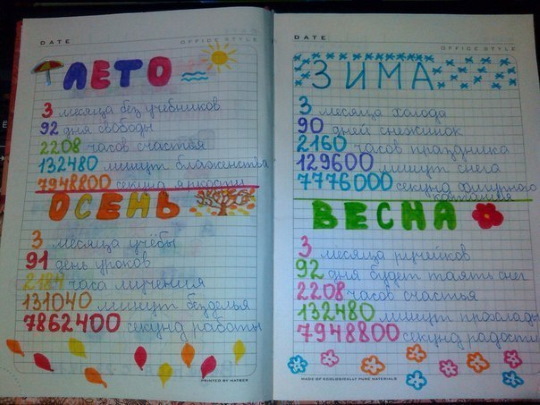 DATE
OFFICE STYLE
ЛЕТО
3 месяца без учебников
92 дня свободы
2208 часов счастья
132480 минут блаженства
7948800 секунд яркости
ОСЕНЬ
3 месяца учёбы
91 день уроков
2184 часа мучения
131040 минут безделья
7862400 секунд работы
DATE
OFFICE STYLE
ЗИМА
3 месяца холода
90 дней снежинок
2160 часов праздника
129600 минут снега
7776000 секунд
ВЕСНА
3 месяца ручейков
92 дня будет таять снег
2208 часов счастья
132480 минут прохлады
7948800 секунд радости
MADE OF ECOLOGICALLY PURE MATERIALS